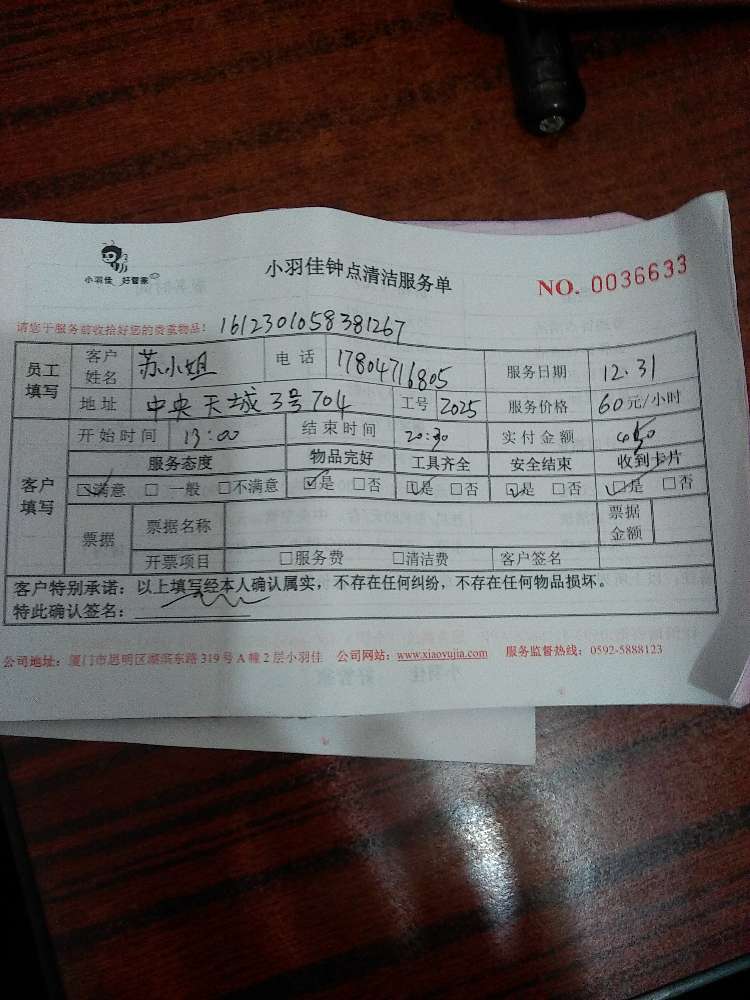 小羽佳 好管家
小羽佳钟点清洁服务单
NO. 0036633
请您于服务前收拾好您的贵重物品! 1612301058381267
员工填写 客户姓名 苏小姐 电话 17804716805 服务日期 12.31
地址 中央天城3号704 工号 2025 服务价格 60元/小时
客户填写 开始时间 13:00 结束时间 20:30 实付金额 450
服务态度 物品完好 工具齐全 安全结束 收到卡片
☑满意 □一般 □不满意 ☑是 □否 ☑是 □否 ☑是 □否 ☑是 □否
票据 票据名称 票据金额
开票项目 □服务费 □清洁费 客户签名
客户特别承诺：以上填写经本人确认属实，不存在任何纠纷，不存在任何物品损坏。
特此确认签名：
公司地址：厦门市思明区湖滨东路319号A幢2层小羽佳 公司网站：www.xiaoyujia.com 服务监督热线：0592-5888123